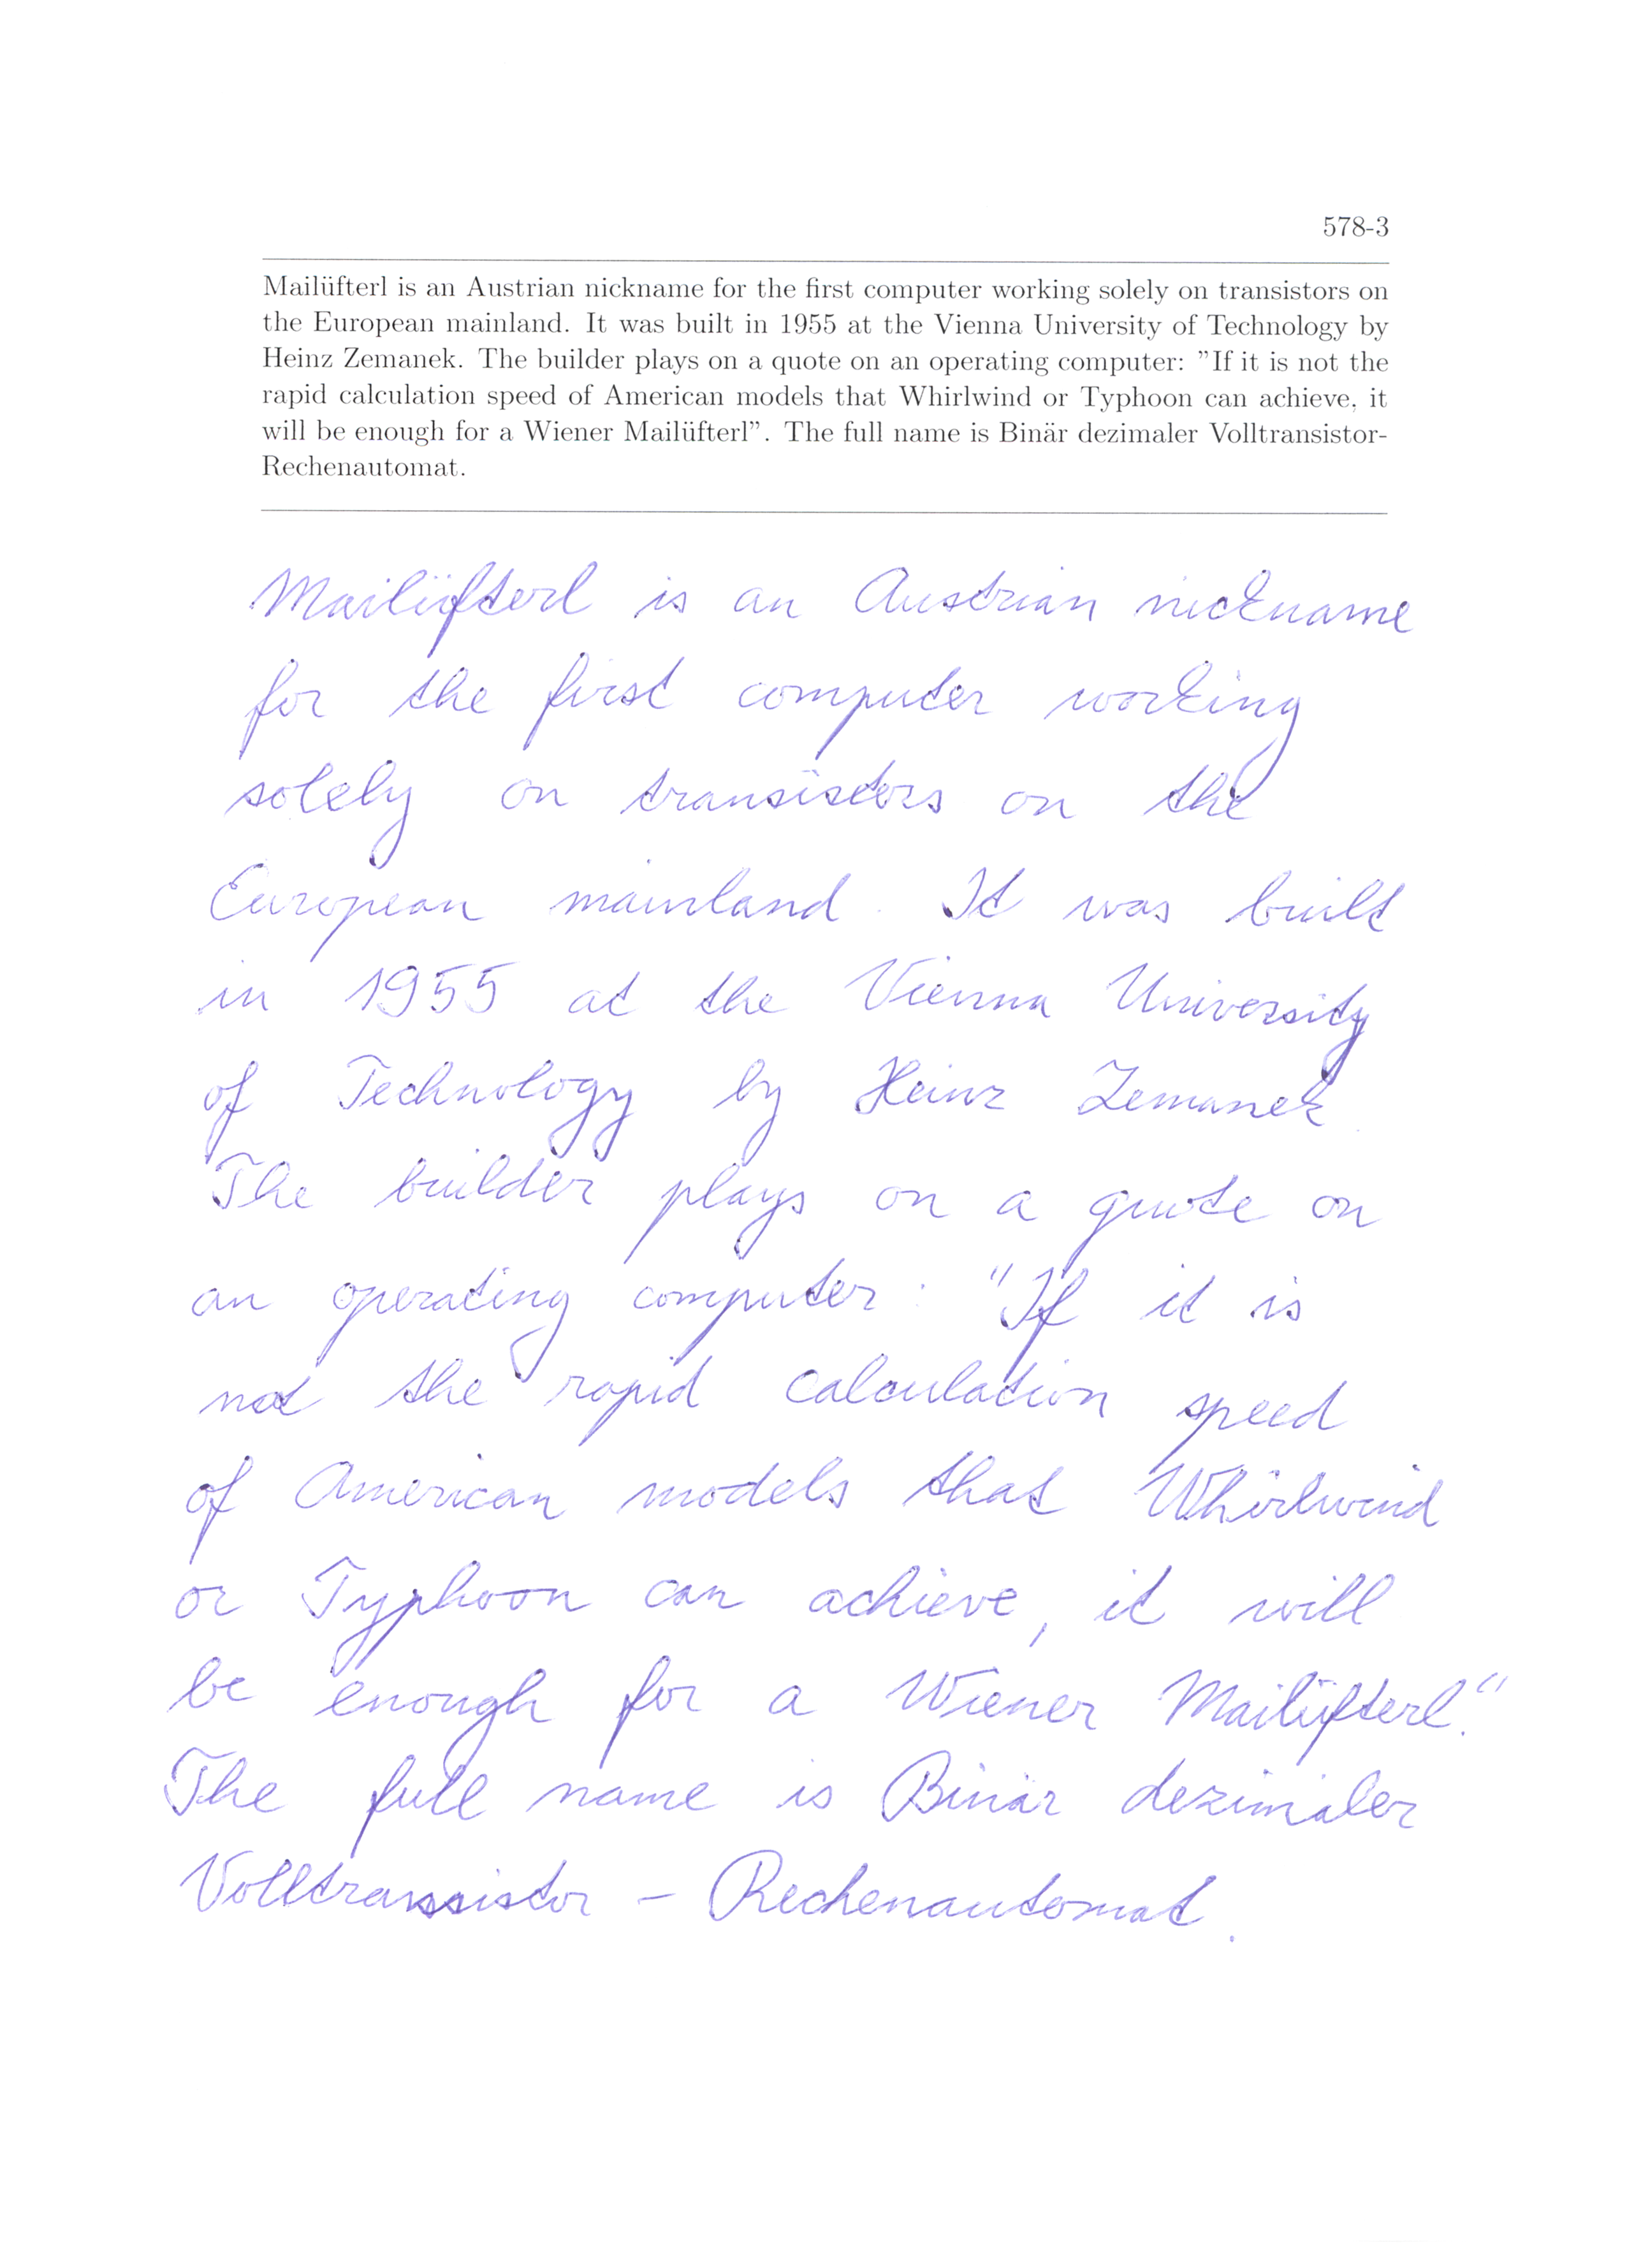 578-3
Mailüfterl is an Austrian nickname for the first computer working solely on transistors on
the European mainland. It was built in 1955 at the Vienna University of Technology by
Heinz Zemanek. The builder plays on a quote on an operating computer: "If it is not the
rapid calculation speed of American models that Whirlwind or Typhoon can achieve, it
will be enough for a Wiener Mailüfterl". The full name is Binär dezimaler Volltransistor-
Rechenautomat.
Mailüfterl is an Austrian nickname
for the first computer working
solely on transistors on the
European mainland. It was built
in 1955 at the Vienna University
of Technology by Heinz Zemanek.
The builder plays on a quote on
an operating computer: "If it is
not the rapid calculation speed
of American models that Whirlwind
or Typhoon can achieve, it will
be enough for a Wiener Mailüfterl."
The full name is Binär dezimaler
Volltransistor - Rechenautomat.